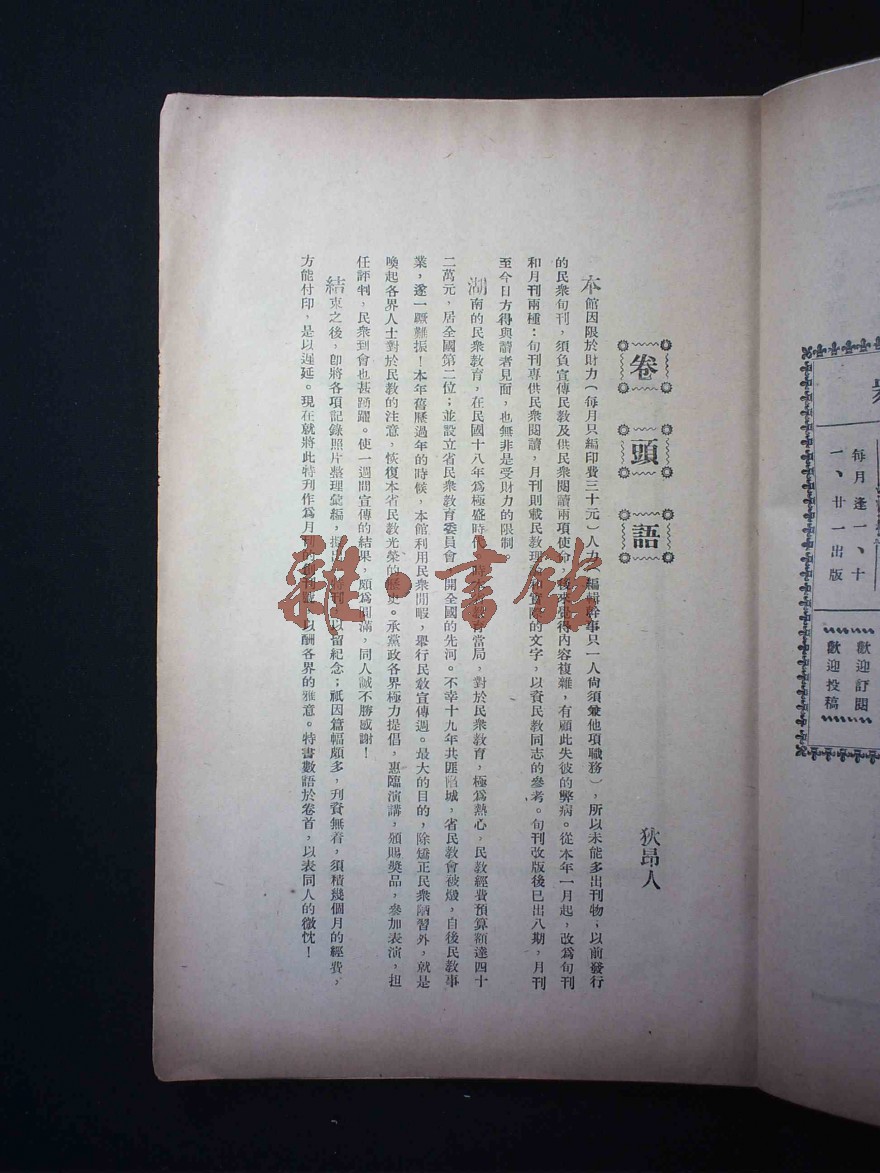 卷頭語
狄昂人
本館因限於財力(每月只編印費三十元)人力,編輯幹事只一人尙須兼他項職務),所以未能多出刊物;以前發行
的民衆旬刊,須負宣傳民敎及供民衆閱讀兩項使命,得內容複雜,有顧此失彼的弊病。從本年一月起,改爲旬刊
和月刊兩種:旬刊專供民衆閱讀,月刊則載民敎理的文字,以資民敎同志的參考。旬刊改版後已出八期,月刊
至今日方得與讀者見面,也無非是受財力的限制。
湖南的民衆敎育,在民國十八年爲極盛時代,當局,對於民衆敎育,極爲熱心,民敎經費預算額達四十
二萬元,居全國第二位;並設立省民衆敎育委員會,開全國的先河。不幸十九年共匪陷城,省民敎會被燬,自後民敎事
業,遂一蹶難振!本年舊歷過年的時候,本館利用民衆閒暇,舉行民敎宣傳週。最大的目的,除矯正民衆陋習外,就是
喚起各界人士對於民敎的注意,恢復本省民敎光榮的歷史。承黨政各界極力提倡,惠臨演講,頒賜獎品,參加表演,担
任評判,民衆到會也甚踴躍。使一週間宣傳的結果,頗爲圓滿,同人誠不勝感謝!
結束之後,卽將各項記錄照片整理彙編,刊以留紀念;祇因篇幅頗多,刋資無着,須積幾個月的經費,
方能付印,是以遲延。現在就將此特刋作爲月刊的創刊號,以酬各界的雅意。特書數語於卷首,以表同人的微忱!
每月逢一、十
一、廿一出版
歡迎訂閱
歡迎投稿
雜·書館